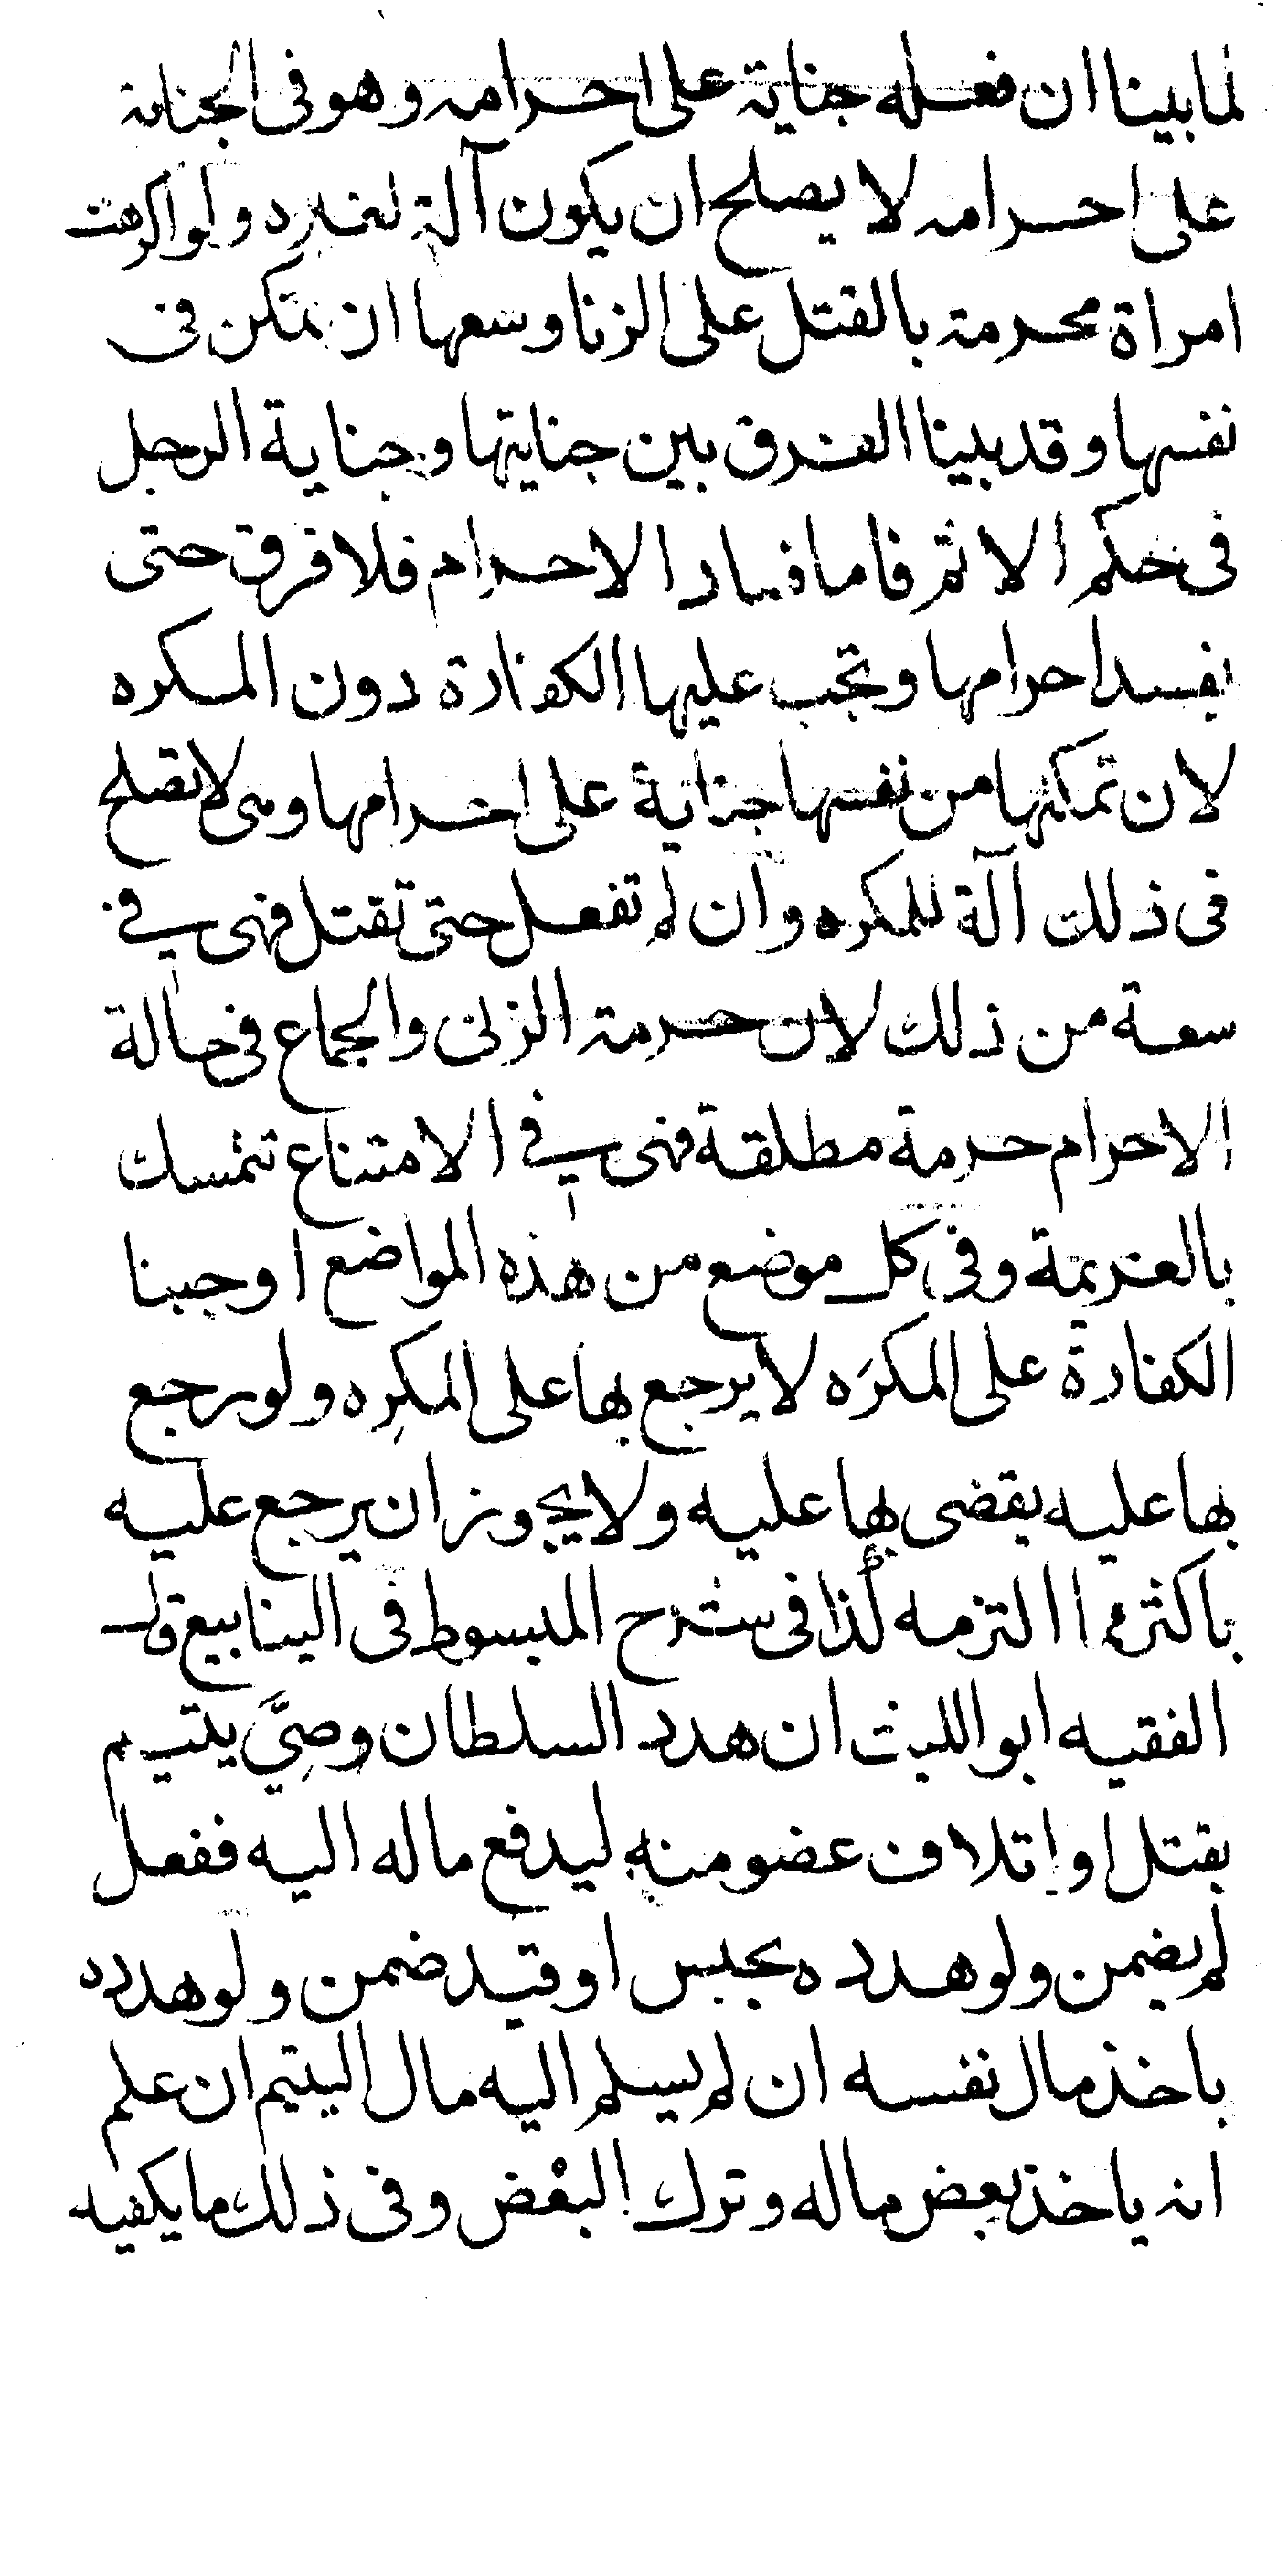 لما بينا ان فعله جناية على احرامه وهو فى الجناية
على احرامه لا يصلح ان يكون آلة لغيره ولو اكرهت
امراة محرمة بالقتل على الزنا وسعها ان تمكن فى
نفسها وقد بينا الفرق بين جنايتها وجناية الرجل
فى حكم الاثم فاما فساد الاحرام فلا فرق حتى
يفسد احرامها وتجب عليها الكفارة دون المكره
لان تمكنها من نفسها جناية على احرامها وهى لا تصلح
فى ذلك آلة للمكره وان لم تفعل حتى تقتل فهى فى
سعة من ذلك لان حرمة الزنى والجماع فى حالة
الاحرام حرمة مطلقة فهى فى الامتناع تتمسك
بالعزيمة وفى كل موضع من هذه المواضع اوجبنا
الكفارة على المكرَه لا يرجع بها على المكرِه ولو رجع
بها عليه يقضى بها عليه ولا يجوز ان يرجع عليه
باكثر مما التزمه كذا فى شرح المبسوط فى الينابيع قال
الفقيه ابو الليث ان هدد السلطان وصِيَّ يتيم
بقتل او اتلاف عضو منه ليدفع ماله اليه ففعل
لم يضمن ولو هدده بحبس او قيد ضمن ولو هدده
باخذ مال نفسه ان لم يسلم اليه مال اليتيم ان علم
انه ياخذ بعض ماله وترك البعْض وفى ذلك ما يكفيه